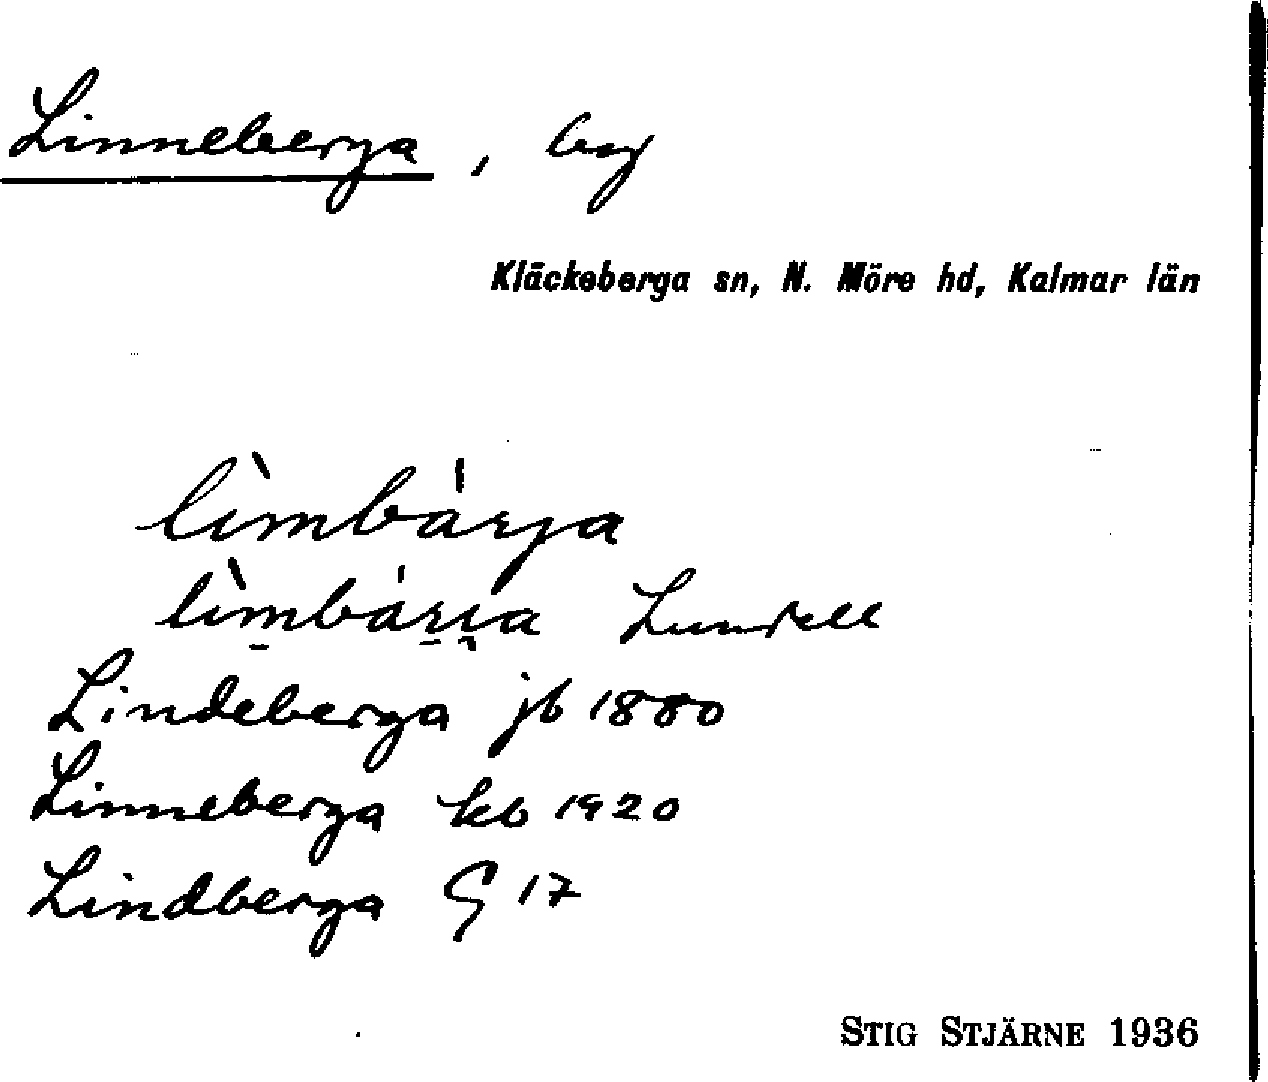 Linneberga, by
Kläckeberga sn, N. Möre hd, Kalmar län
lìmbárja
lìm̱báṟi̯a Lundell
Lindeberga jb 1880
Linneberga kb 1920
Lindberga G 17
STIG STJÄRNE 1936